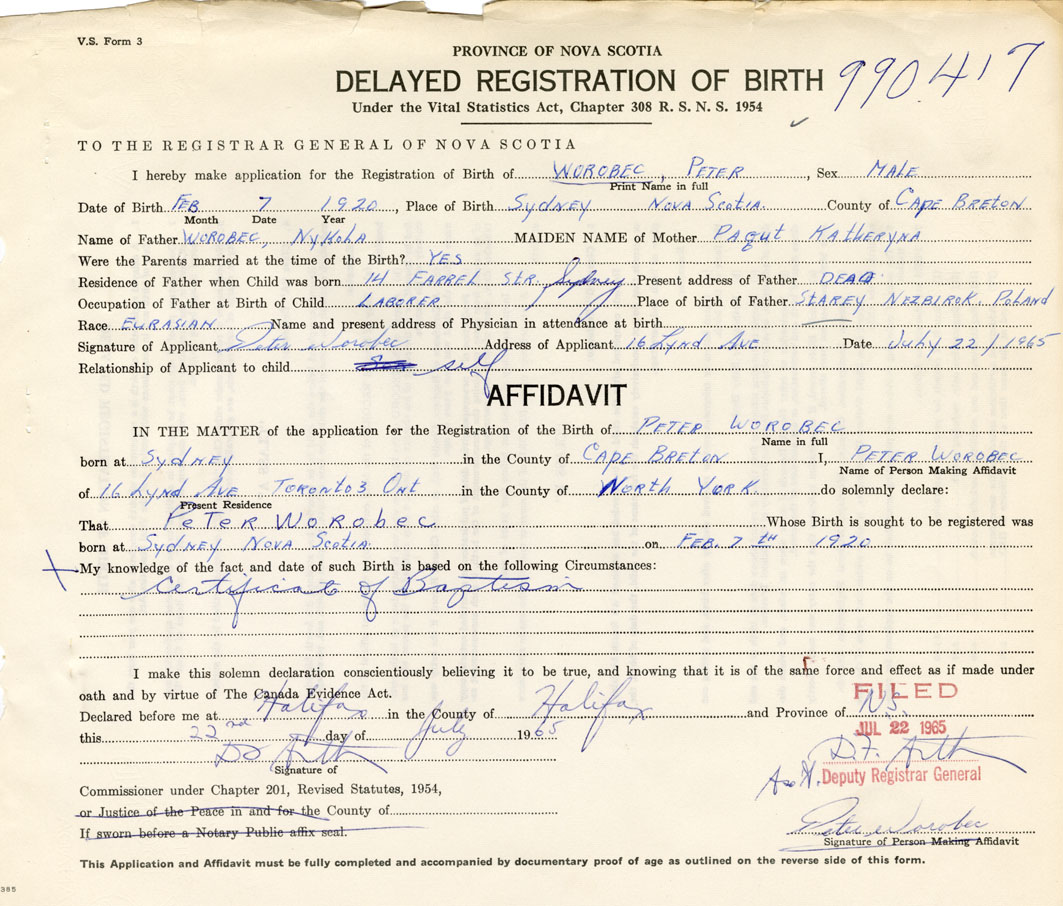 V.S. Form 3
PROVINCE OF NOVA SCOTIA
DELAYED REGISTRATION OF BIRTH 990417
Under the Vital Statistics Act, Chapter 308 R. S. N. S. 1954
TO THE REGISTRAR GENERAL OF NOVA SCOTIA
I hereby make application for the Registration of Birth of WOROBEC, PETER, Sex MALE
Print Name in full
Date of Birth FEB 7 1920, Place of Birth SYDNEY NOVA SCOTIA County of CAPE BRETON
Month Date Year
Name of Father WOROBEC, NYKOLA MAIDEN NAME of Mother PAQUT KATHERYNA
Were the Parents married at the time of the Birth? YES
Residence of Father when Child was born 14 FARREL STR. Sydney Present address of Father DEAD
Occupation of Father at Birth of Child LABORER Place of birth of Father STAREY NEZBIROK. POLAND
Race EURASIAN Name and present address of Physician in attendance at birth
Signature of Applicant Peter Worobec Address of Applicant 16 Lynd AVE Date July 22/1965
Relationship of Applicant to child self
AFFIDAVIT
IN THE MATTER of the application for the Registration of the Birth of PETER WOROBEC
Name in full
born at SYDNEY in the County of CAPE BRETON I, PETER WOROBEC
Name of Person Making Affidavit
of 16 Lynd AVE TORONTO 3 ONT in the County of NORTH YORK do solemnly declare:
Present Residence
That PETER WOROBEC Whose Birth is sought to be registered was
born at SYDNEY NOVA SCOTIA on FEB. 7 TH 1920
My knowledge of the fact and date of such Birth is based on the following Circumstances:
Certificate of Baptism
I make this solemn declaration conscientiously believing it to be true, and knowing that it is of the same force and effect as if made under
oath and by virtue of The Canada Evidence Act.
FILED
Declared before me at Halifax in the County of Halifax and Province of N.S.
this 22nd day of July 1965
JUL 22 1965
Signature of
D.F. Arth
Deputy Registrar General
Commissioner under Chapter 201, Revised Statutes, 1954,
or Justice of the Peace in and for the County of
If sworn before a Notary Public affix seal.
Peter Worobec
Signature of Person Making Affidavit
This Application and Affidavit must be fully completed and accompanied by documentary proof of age as outlined on the reverse side of this form.
385